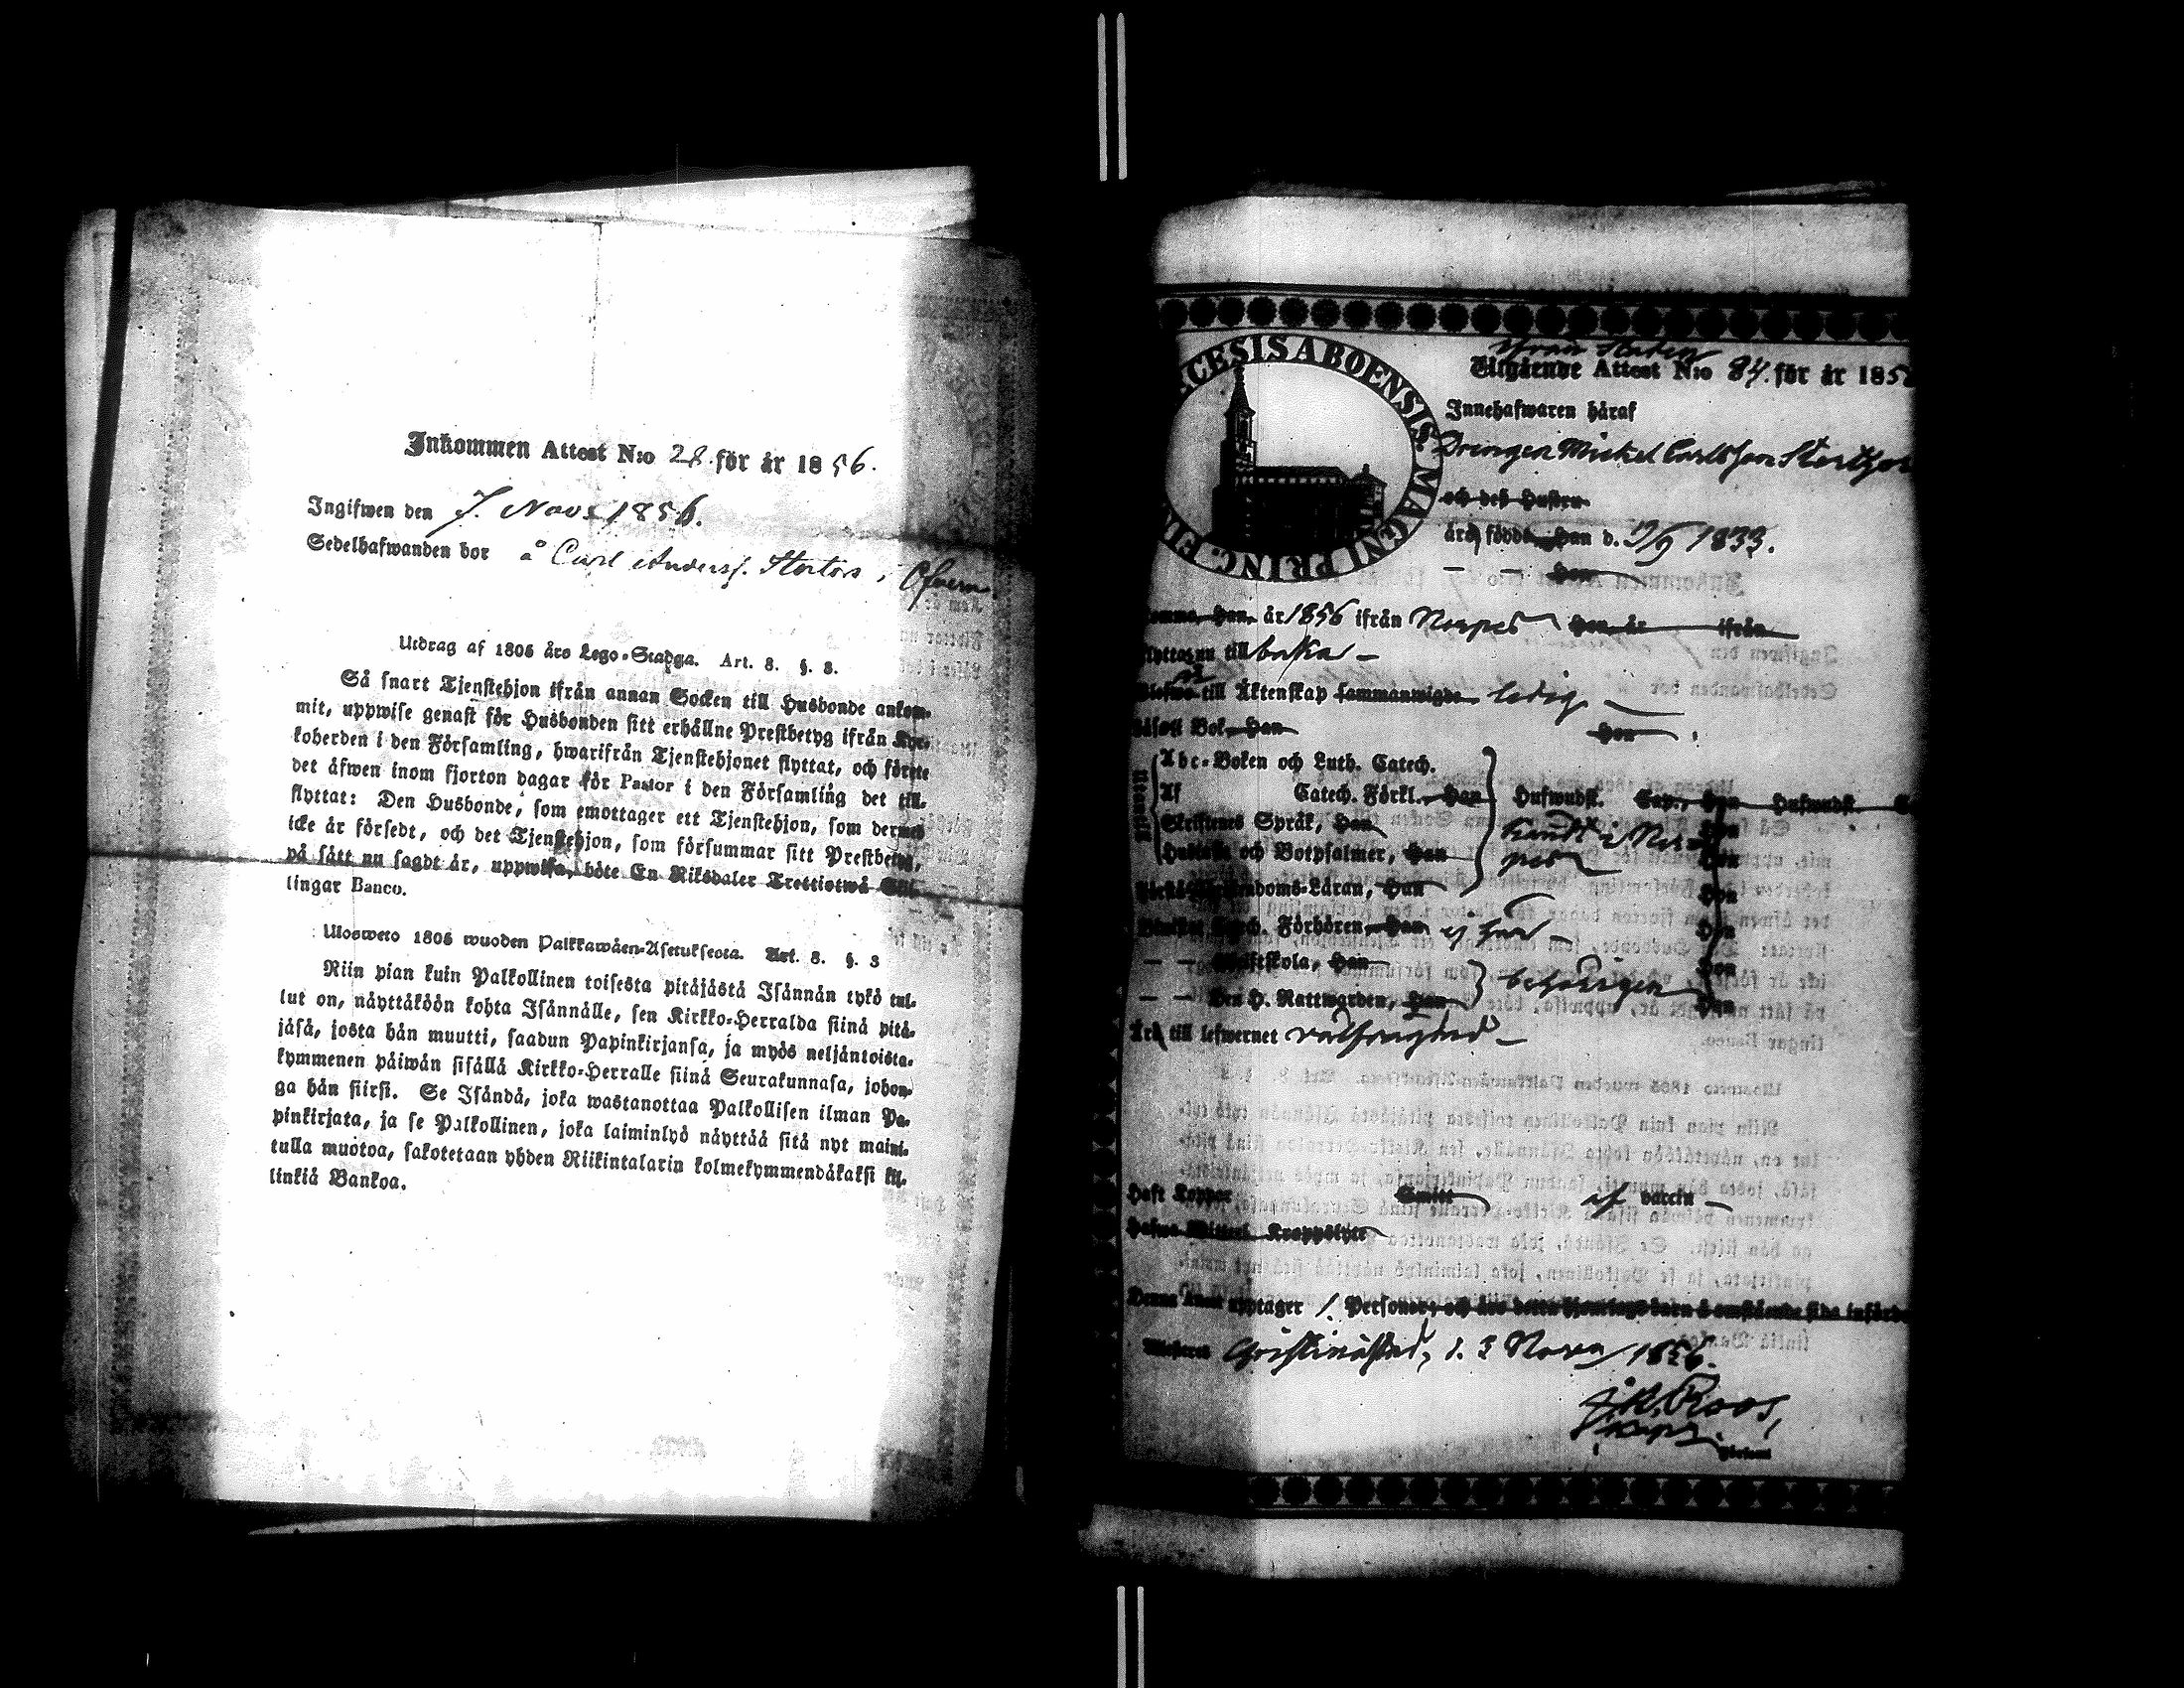 Inkommen Attest N:o 28. för år 1856.
Ingifwen den 7. Nov. 1856.
Sedelhafwanden bor å Carl Anderss. Stortors i Öfverm.
Utdrag af 1805 års Lego-Stadga. Art. 8. §. 3.
Så snart Tjenstehjon ifrån annan Socken till Husbonde ankom-
mit, uppwise genast för Husbonden sitt erhållne Prestbetyg ifrån Kyr-
koherden i den Församling, hwarifrån Tjenstehjonet flyttat, och förete
det äfwen inom fjorton dagar för Pastor i den Församling det till-
flyttat: Den Husbonde, som emottager ett Tjenstehjon, som dermed
icke är försedt, och det Tjenstehjon, som försummar sitt Prestbetyg,
på sätt nu sagdt är, uppwisa, böte En Riksdaler Trettiotwå Skil-
lingar Banco.
Ulosweto 1805 wuoden Palkkawäen-Asetuksesta. Art. 8. §. 3
Niin pian kuin Palkollinen toisesta pitäjästä Isännän tykö tul-
lut on, näyttäköön kohta Isännälle, sen Kirkko-Herralda siinä pitä-
jäsä, josta hän muutti, saadun Papinkirjansa, ja myös neljäntoista-
kymmenen päiwän sisällä Kirkko-Herralle siinä Seurakunnasa, johon-
ga hän siirsi. Se Isändä, joka wastanottaa Palkollisen ilman Pa-
pinkirjata, ja se Palkollinen, joka laiminlyö näyttää sitä nyt maini-
tulla muotoa, sakotetaan yhden Riikintalarin kolmekymmendäkaksi kil-
linkiä Bankoa.
ifrån Staden
Utgående Attest N:o 84. för år 185
CESIS ABOENSIS MAGNI PRINC. FI
Innehafwaren häraf
Drengen Mickel Carlsson
och deß Hustru
född Han d. 1833.
Hon
Han år 1856 ifrån Nerpes Hon år ifrån
nu till baka
till Äktenskap sammanwigde ledig
Bok, Han Hon
Abc-Boken och Luth. Catech.
Af Catech. Förkl. Han Hufwudst. Cap., Hon Hufwudst.
Skriftenes Språk, Han kändt i Ner- Hon
Hustafla och Botpsalmer, Han pes Hon
Christendoms-Läran, Han Hon
Förhören, Han ej här Hon
— — Skriftskola, Han behörigen Hon
— — Den H. Nattwarden, Han Hon
Är till lefwernet
Haft Koppor Smitt af vaccin
Denna upptager 1 Personer, och äro detta hjonelags barn å omstående sida införde
Christinæstad, d. 3 Novem 1856.
Roos,